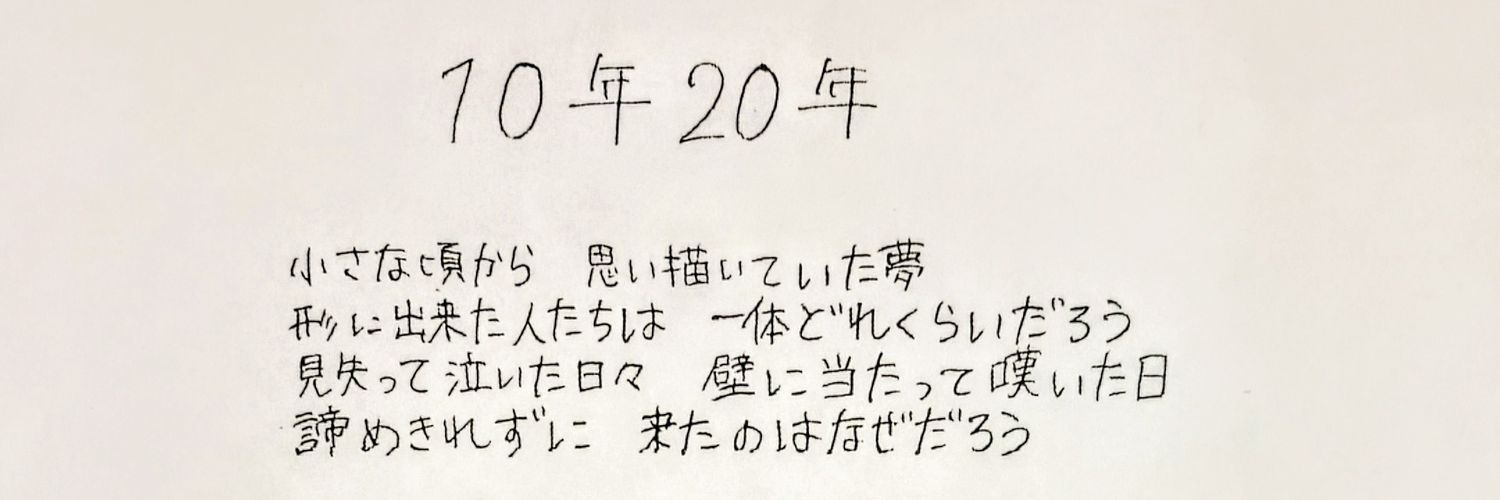 10年20年
小さな頃から　思い描いていた夢
形に出来た人たちは　一体どれくらいだろう
見失って泣いた日々　壁に当たって嘆いた日
諦めきれずに　来たのはなぜだろう